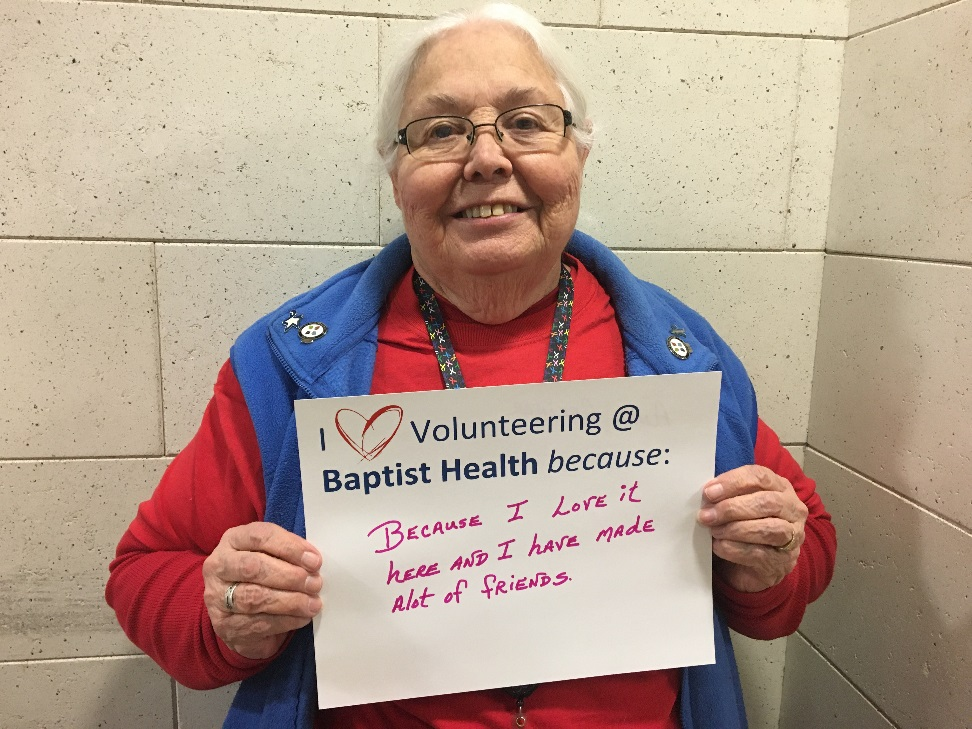 I Volunteering @
Baptist Health because:
BECAUSE I LOVE iT
hERE AND I hAVE MADE
Alot of fRiENDS.